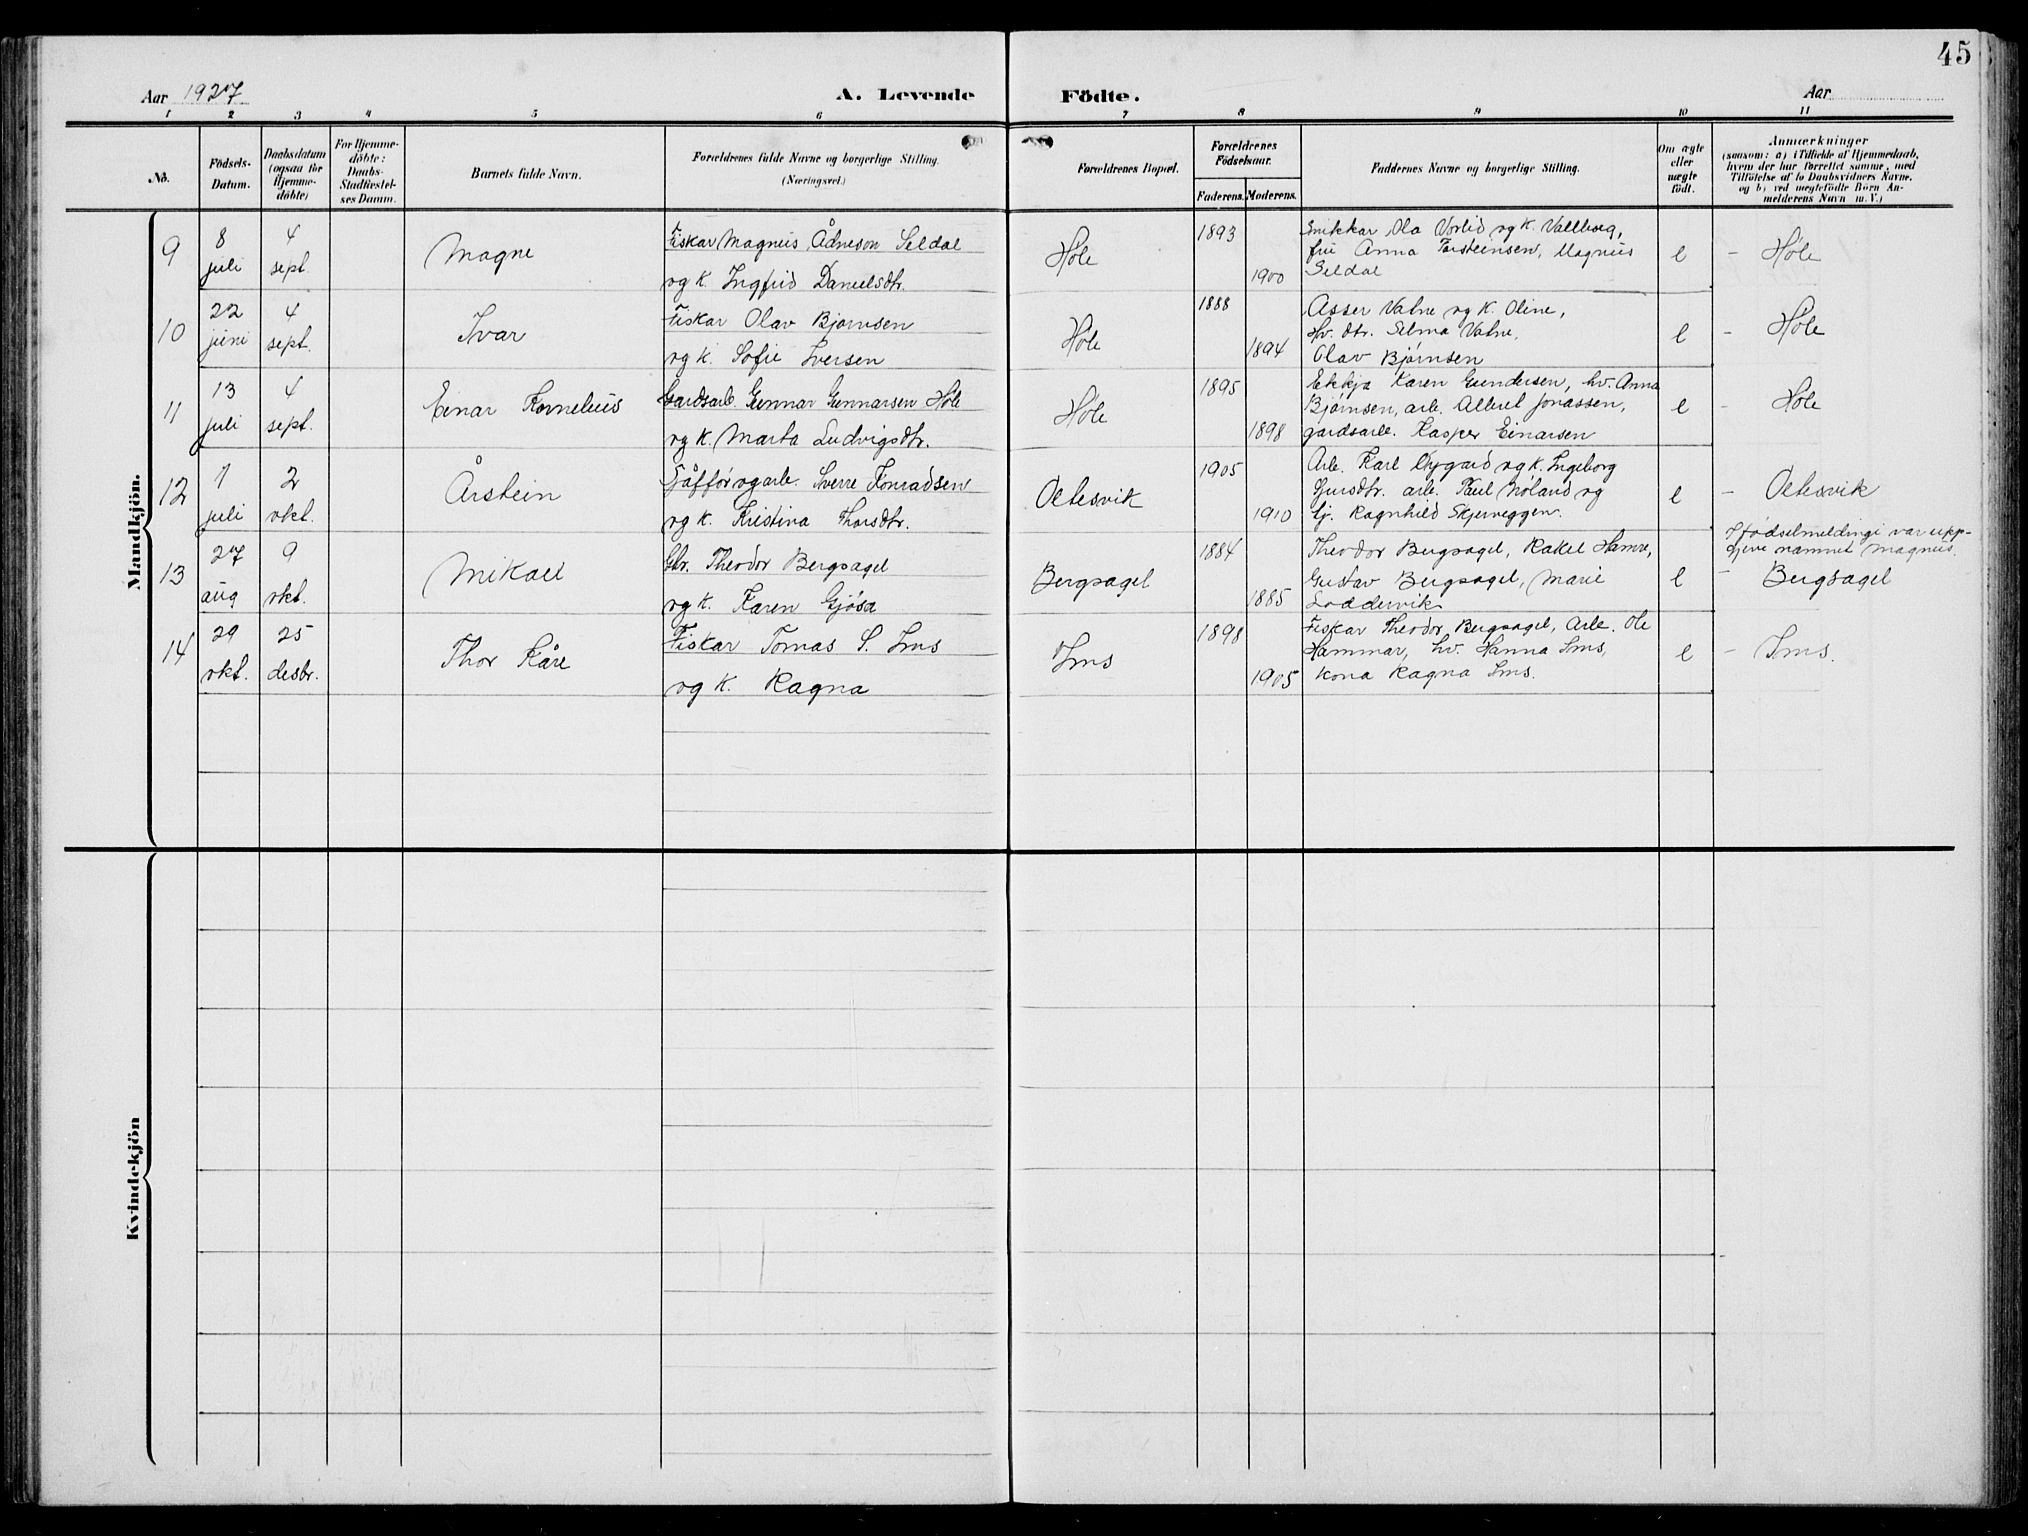 45
Aar 1927 A. Levende Födte. Aar
1 2 3 4 5 6 7 8 9 10 11
No.
Födsels-Datum.
Daabsdatum (ogsaa for Hjemme-döbte)
For Hjemme-döbte: Daabs-Stadfæstel-ses Datum.
Barnets fulde Navn.
Forældrenes fulde Navne og borgerlige Stilling.
(Næringsvei.)
Forældrenes Bopæl.
Forældrenes Födselsaar.
Faderens. Moderens.
Faddernes Navne og borgerlige Stilling.
Om ægte eller uægte födt.
Anmærkninger
(saasom: a) i Tilfælde af Hjemmedaab,
hvem der har forrettet samme, med
Tilföielse af to Daabsvidners Navne.
og b) ved uægtefödte Börn An-
melderens Navn m. V.)
Mandkjön.
9 8 juli 4 sept. Magne
Fiskar Magnus Ådneson Seldal
og k. Ingfrid Danielsdtr.
Høle 1893 1900
Snikkar Ola Vorlid og k. Vallborg,
frú Anna Torsteinsen, Magnus
Seldal
e - Høle
10 22 juni 4 sept. Ivar
Fiskar Olav Bjørnsen
og k. Sofie Iversen
Høle 1888 1894
Asser Vatne og k. Oline,
hv. dtr. Selma Vatne,
Olav Bjørnsen
e - Høle
11 13 juli 4 sept. Einar Kornelius
Gardsarb. Gunnar Gunnarsen Høle
og k. Marta Ludvigsdtr.
Høle 1895 1898
Ekkja Karen Gundersen, hv. Anna
Bjørnsen, arb. Albret Jonassen,
gardsarb. Kasper Einarsen
e - Høle
12 1 juli 2 okt. Årstein
Sjåffør og arb. Sverre Konradsen
og k. Kristina Thorsdtr.
Oltesvik 1905 1910
Arb. Karl Nygard og k. Ingeborg
arb. Paul Noland og
Ragnhild Skjerveggen.
e - Oltesvik
13 27 aug 9 okt. Mikael
Gbr. Theodor Bergsagel
og k. Karen Gjøsa
Bergsagel 1884 1885
Theodor Bergsagel, Rakel Hamre,
Gustav Bergsagel, Marie
Loddervik
e
I fødselmeldingi var upp-
gjeve namnet Magnus.
- Bergsagel
14 29 okt. 25 desbr. Thor Kåre
Fiskar Tomas S. Ims
og k. Ragna
Ims 1898 1905
Fiskar Theodor Bergsagel, Arb. Ole
Hammar, hv. Hanna Ims,
kona Ragna Ims.
e - Ims.
Kvindekjön